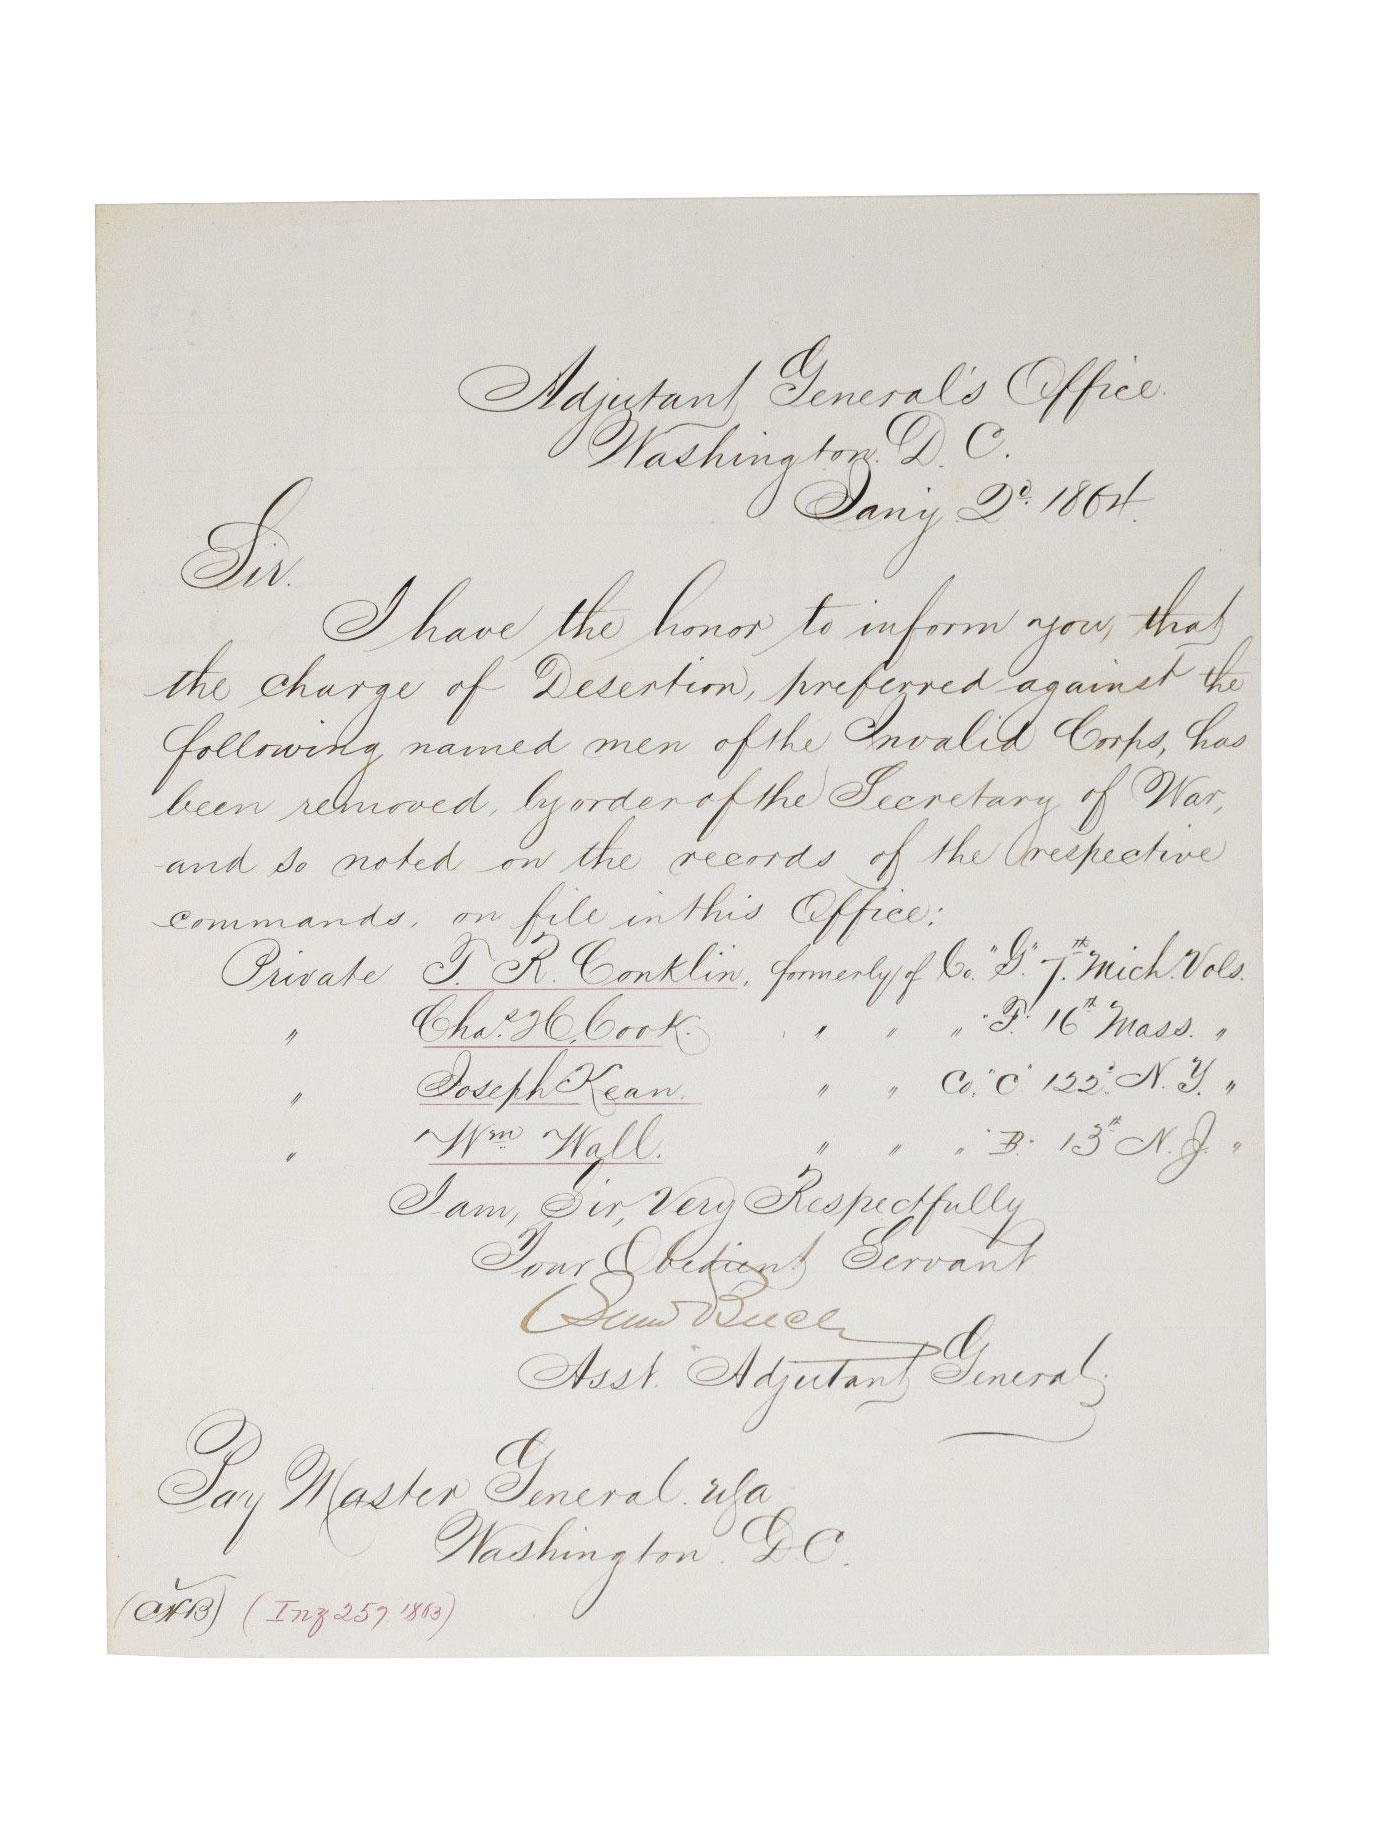 Adjutant General's Office.
Washington. D. C.
Jan'y 2d. 1864.
Sir.
I have the honor to inform you, that
the charge of Desertion, preferred against the
following named men of the Invalid Corps, has
been removed, by order of the Secretary of War,
and so noted on the records of the respective
commands, on file in this Office:
Private T. R. Conklin, formerly of Co. "G" 7th. Mich. Vols.
" Chas. H. Cook. " " " "F" 16th Mass. "
" Joseph Kean. " " Co. "C" 122d. N. Y. "
" Wm. Wall. " " " "B" 13th N. J. "
I am, Sir, Very Respectfully
Your Obedient Servant
Asst. Adjutant General.
Pay Master General. USA
Washington. D.C.
(Inf 257 1863)